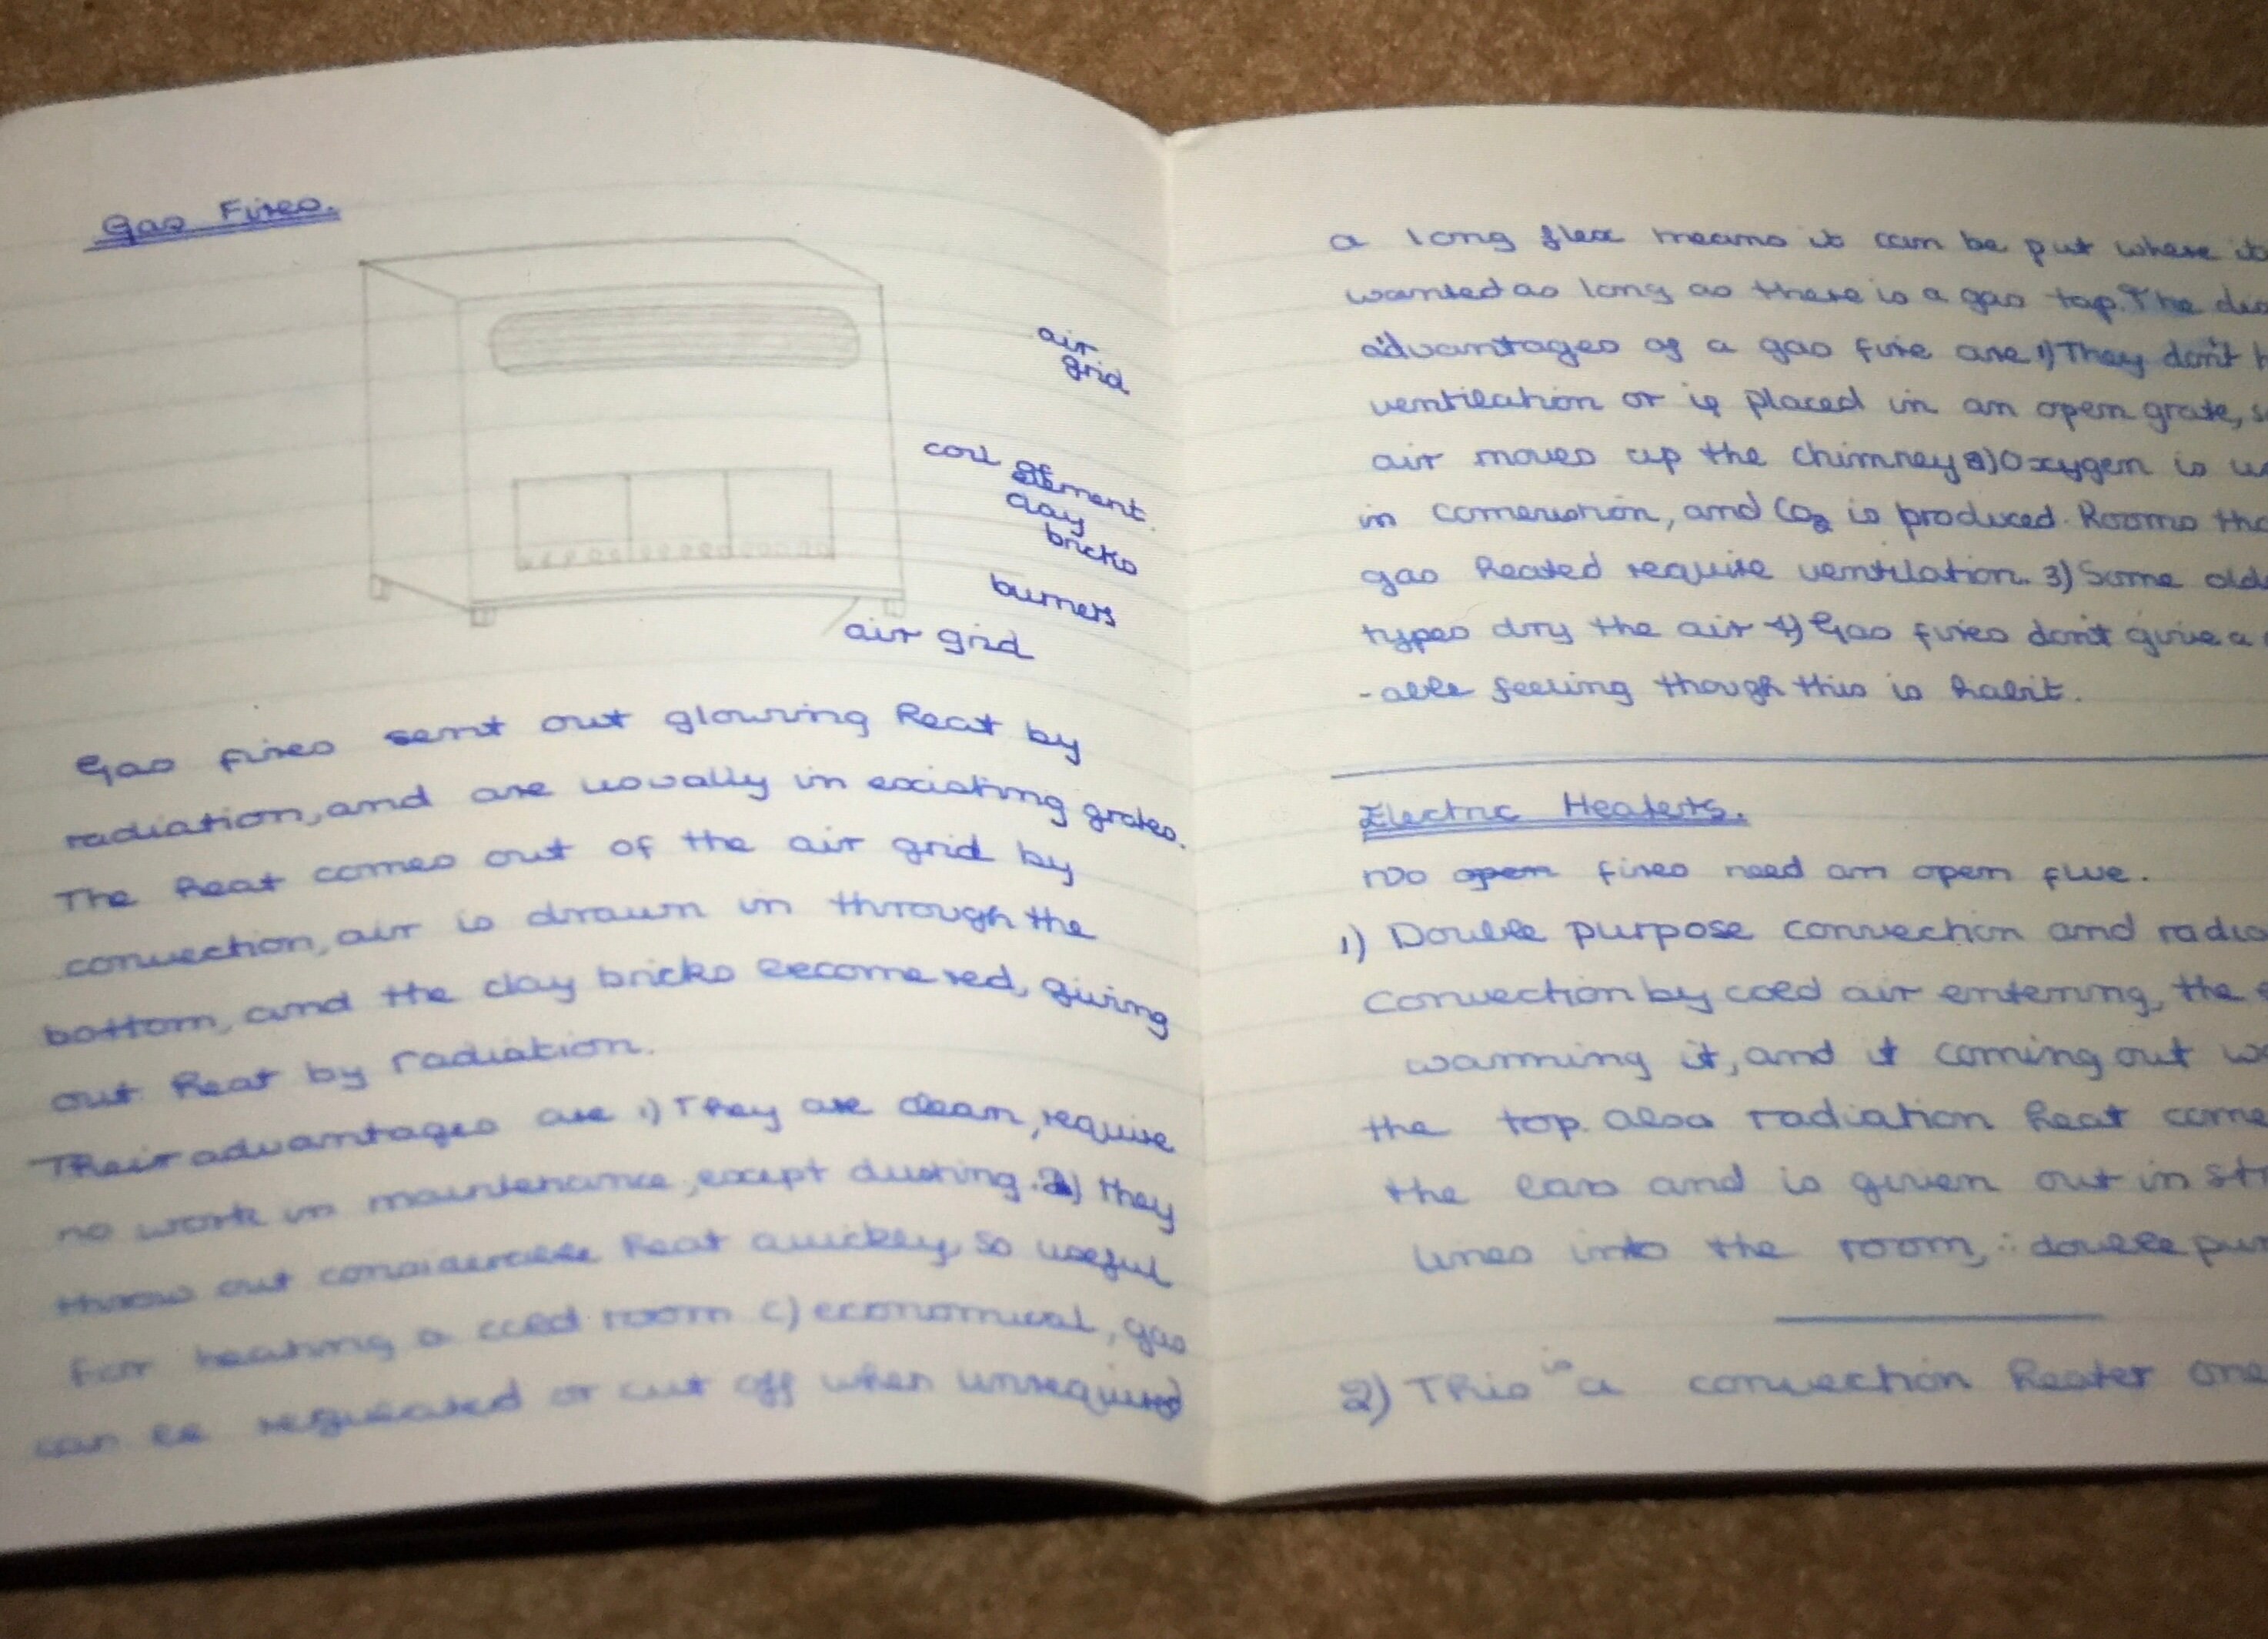 Gas Fires.
air
grid
coil element
clay
bricks
burners
air grid
Gas fires sent out glowing heat by
radiation, and are usually in existing grates.
The heat comes out of the air grid by
convection, air is drawn in through the
bottom, and the clay bricks become red, giving
out heat by radiation.
Their advantages are 1) They are clean, require
no work in maintenance, except dusting. 2) they
throw out considerable heat quickly, so useful
for heating a cold room c) economical, gas
can be regulated or cut off when unrequired
a long flex means it can be put where it
wanted as long as there is a gas tap. The dis
advantages of a gas fire are 1) They don't
ventilation or if placed in an open grate,
air moves up the chimney 2) Oxygen is us
in comerstion, and CO2 is produced. Rooms tha
gas heated require ventilation. 3) Some old
types dry the air 4) Gas fires don't give a
-able feeling though this is habit.
Electric Heaters.
No open fires need an open flue.
1) Double purpose convection and radia
Convection by cold air entering, the
warming it, and it coming out wa
the top. also radiation heat come
the bars and is given out in str
lines into the room, ∴ double pur
2) This is a convection heater one